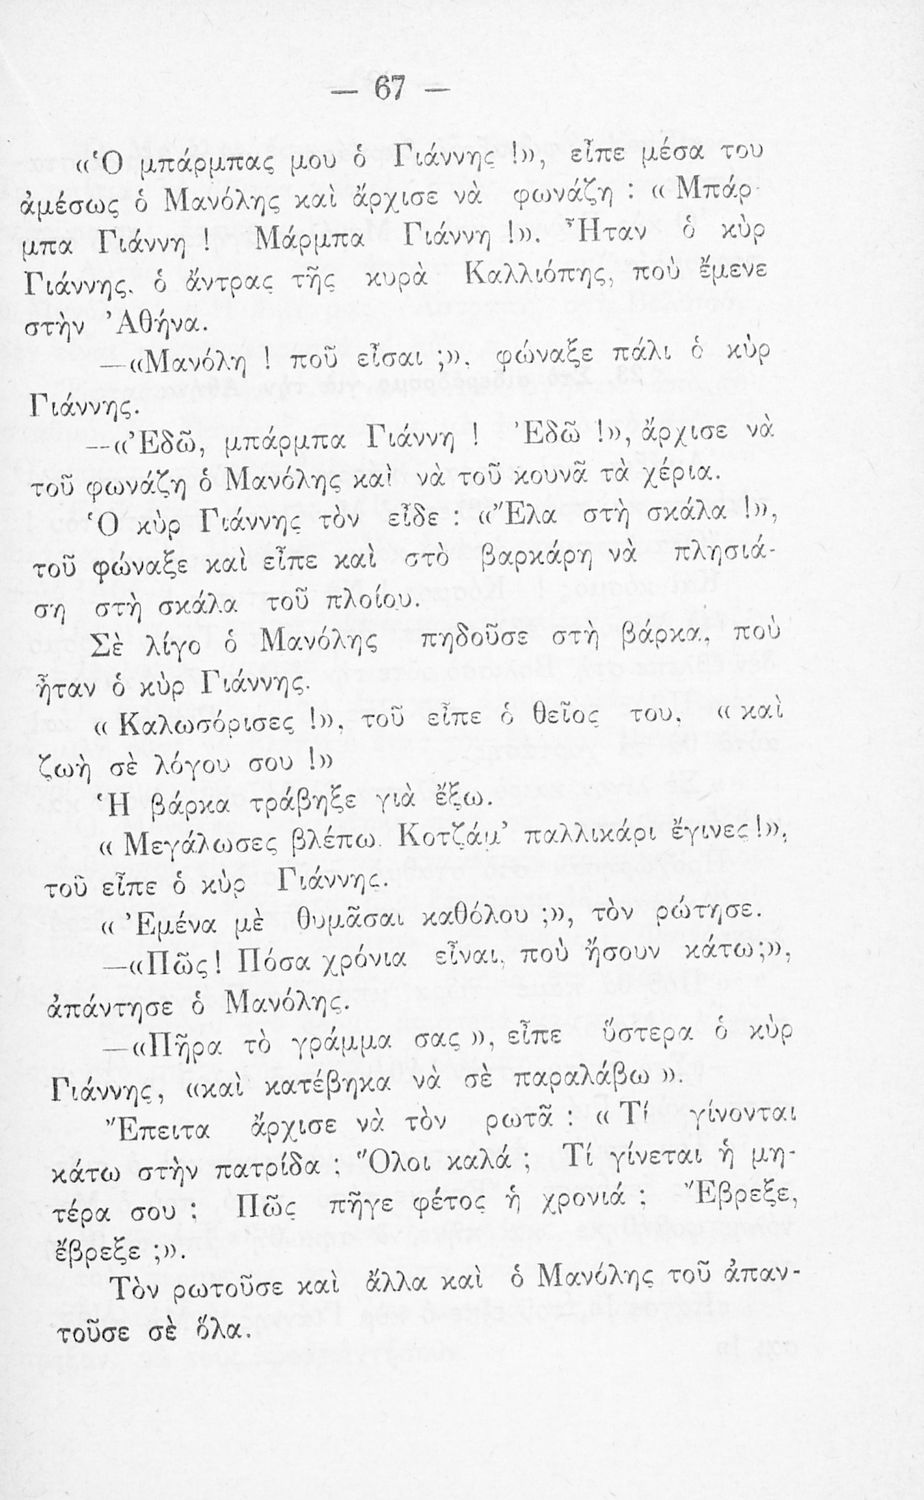 — 67 —
«Ὁ μπάρμπας μου ὁ Γιάννης !», εἶπε μέσα του
ἀμέσως ὁ Μανόλης καὶ ἄρχισε νὰ φωνάζη : « Μπάρ-
μπα Γιάννη ! Μάρμπα Γιάννη !». Ἦταν ὁ κὺρ
Γιάννης. ὁ ἄντρας τῆς κυρὰ Καλλιόπης, ποὺ ἔμενε
στὴν Ἀθήνα.
—«Μανόλη ! ποῦ εἶσαι ;». φώναξε πάλι ὁ κὺρ
Γιάννης.
—«Ἐδῶ, μπάρμπα Γιάννη ! Ἐδῶ !», ἄρχισε νὰ
τοῦ φωνάζη ὁ Μανόλης καὶ νὰ τοῦ κουνᾶ τὰ χέρια.
Ὁ κὺρ Γιάννης τὸν εἶδε : «Ἔλα στὴ σκάλα !»,
τοῦ φώναξε καὶ εἶπε καὶ στὸ βαρκάρη νὰ πλησιά-
ση στὴ σκάλα τοῦ πλοίου.
Σὲ λίγο ὁ Μανόλης πηδοῦσε στὴ βάρκα, ποὺ
ἦταν ὁ κὺρ Γιάννης.
« Καλωσόρισες !». τοῦ εἶπε ὁ θεῖος του, « καὶ
ζωὴ σὲ λόγου σου !»
Ἡ βάρκα τράβηξε γιὰ ἔξω.
« Μεγάλωσες βλέπω. Κοτζάμ’ παλλικάρι ἔγινες !»,
τοῦ εἶπε ὁ κὺρ Γιάννης.
« Ἐμένα μὲ θυμᾶσαι καθόλου ;», τὸν ρώτησε.
—«Πῶς! Πόσα χρόνια εἶναι, ποὺ ἤσουν κάτω;»,
ἀπάντησε ὁ Μανόλης.
—«Πῆρα τὸ γράμμα σας », εἶπε ὕστερα ὁ κὺρ
Γιάννης, «καὶ κατέβηκα νὰ σὲ παραλάβω ».
Ἔπειτα ἄρχισε νὰ τὸν ρωτᾶ : « Τί γίνονται
κάτω στὴν πατρίδα ; Ὅλοι καλά ; Τί γίνεται ἡ μη-
τέρα σου ; Πῶς πῆγε φέτος ἡ χρονιά ; Ἔβρεξε,
ἔβρεξε ;».
Τὸν ρωτοῦσε καὶ ἄλλα καὶ ὁ Μανόλης τοῦ ἀπαν-
τοῦσε σὲ ὅλα.